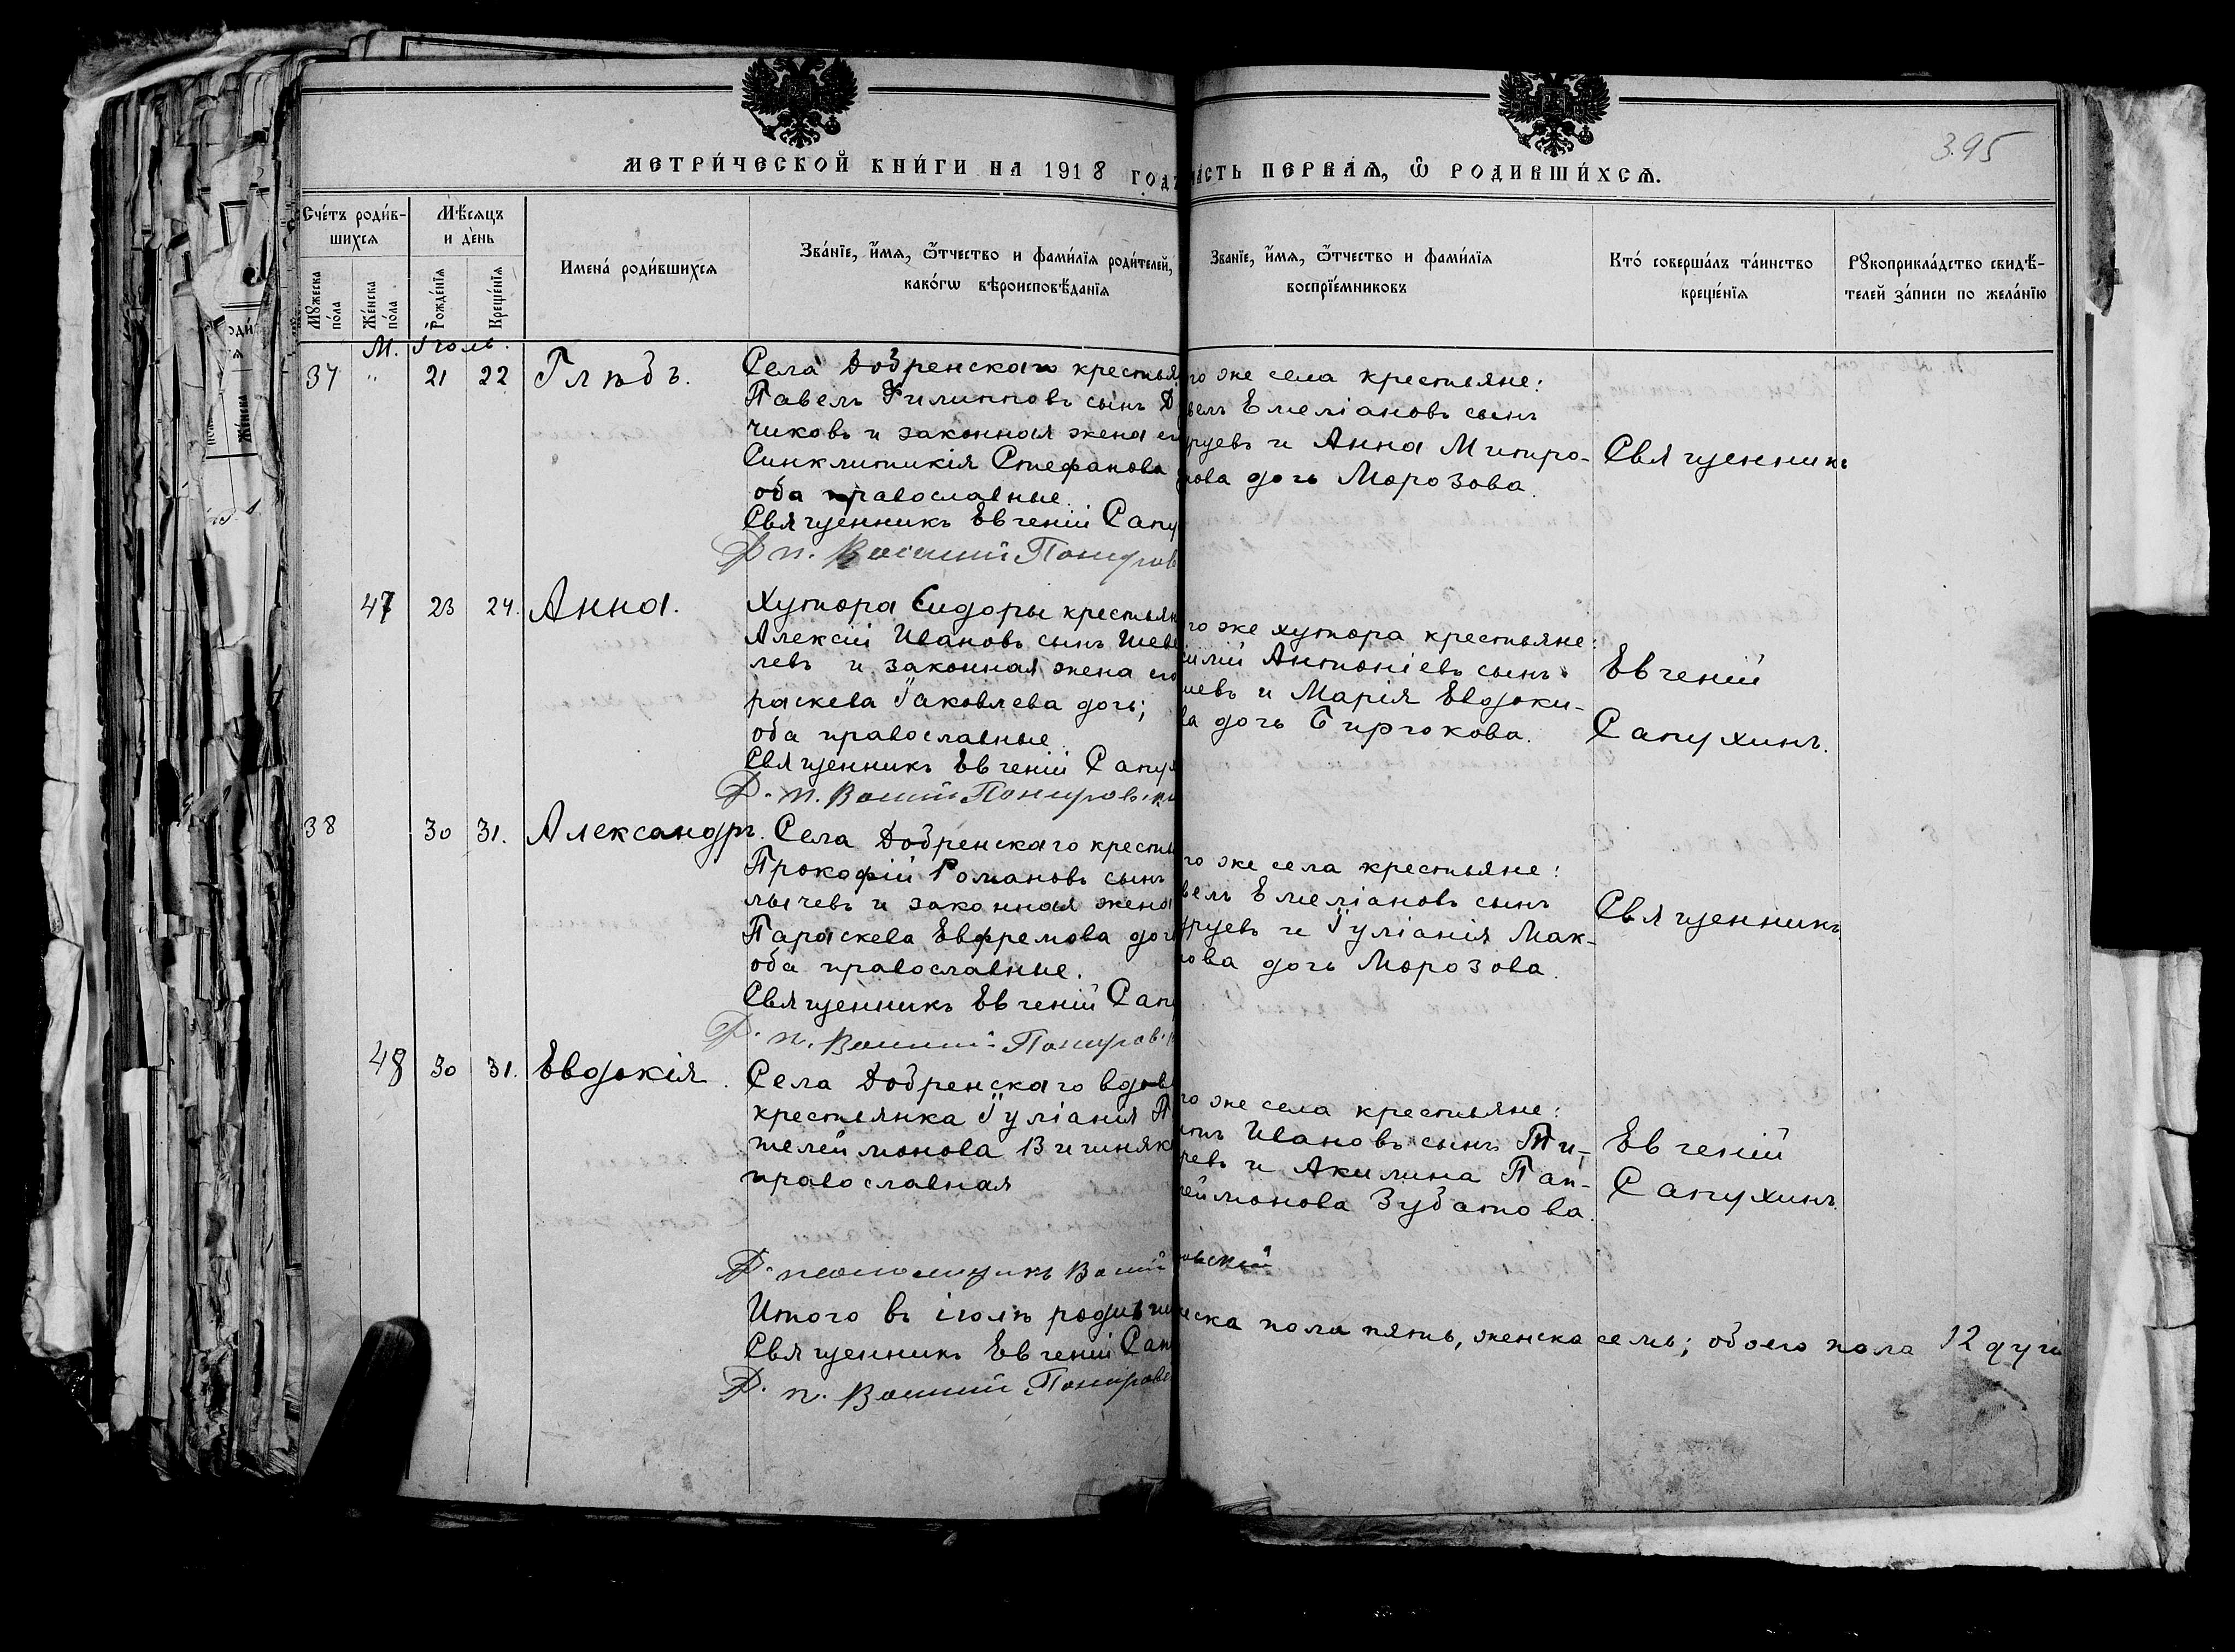 МЕТРИ́ЧЕСКОЙ КНИ́ГИ НА 1918 ГОДЪ
ЧА́СТЬ ПЕРВАЯ, Ѡ РОДИВШИ́ХСѦ.
395
Сче́тъ роди́в-
шихсѧ
Мѣ́сѧцъ
и де́нь
Мꙋжеска
по́ла
Же́нска
по́ла
Рожде́нїѧ
Креще́нїѧ
Имена́ роди́вшихсѧ
Зва́нїе, и́мѧ, ѻ҆́тчество и фами́лїѧ роди́телей,
како́гѡ вѣроисповѣ́данїѧ
Зва́нїе, и́мѧ, ѻ҆́тчество и фами́лїѧ
воспрїе́мниковъ
Кто́ соверша́лъ та́инство
креще́нїѧ
Рꙋкоприкла́дство свидѣ́-
телей за́писи по жела́нїю
М. Іюль.
37 " 21 22 Глѣбъ.
Села Добренскаго крестья
Павелъ Филипповъ сынъ Д
чиковъ и законная жена ег
Синклитикія Стефанова
оба православные.
Священникъ Евгеній Сапу
Д п. Василій Покиров
го же села крестьяне:
велъ Емеліановъ сынъ
руевъ и Анна Митро-
нова дочь Морозова.
Священникъ
47 23 24. Анна.
Хутора Сидоры крестьян
Алексій Ивановъ сынъ Шеве
левъ и законная жена его
раскева Іаковлева дочь;
оба православные
Священникъ Евгеній Сапух
Д. п. Василій
го же хутора крестьяне:
силій Антоніевъ сынъ
левъ и Марія Евдоки-
ва дочь Бирюкова.
Евгеній
Сапухинъ.
38 30 31. Александръ.
Села Добренскаго крестья
Прокофій Романовъ сынъ
лычевъ и законная жена
Параскева Евфремова дочь
оба православные.
Священникъ Евгеній Сапу
Д. п. Василій
го же села крестьяне:
велъ Емеліановъ сынъ
руевъ и Іуліанія Мак-
мова дочь Морозова.
Священникъ
48 30 31. Евдокія.
Села Добренскаго вдова
крестьянка Іуліания П
телеймонова Вишняк
православная
го же села крестьяне:
Ивановъ сынъ Ти-
ревъ и Акилина Пан-
леймонова Зубатова.
Евгеній
Сапухинъ.
Д. псаломщикъ Василій
овскій
Итого въ іюлѣ родивши
жеска пола пять, женска семь; обоего пола 12 душъ
Священникъ Евгеній Сап
Д. п. Василій